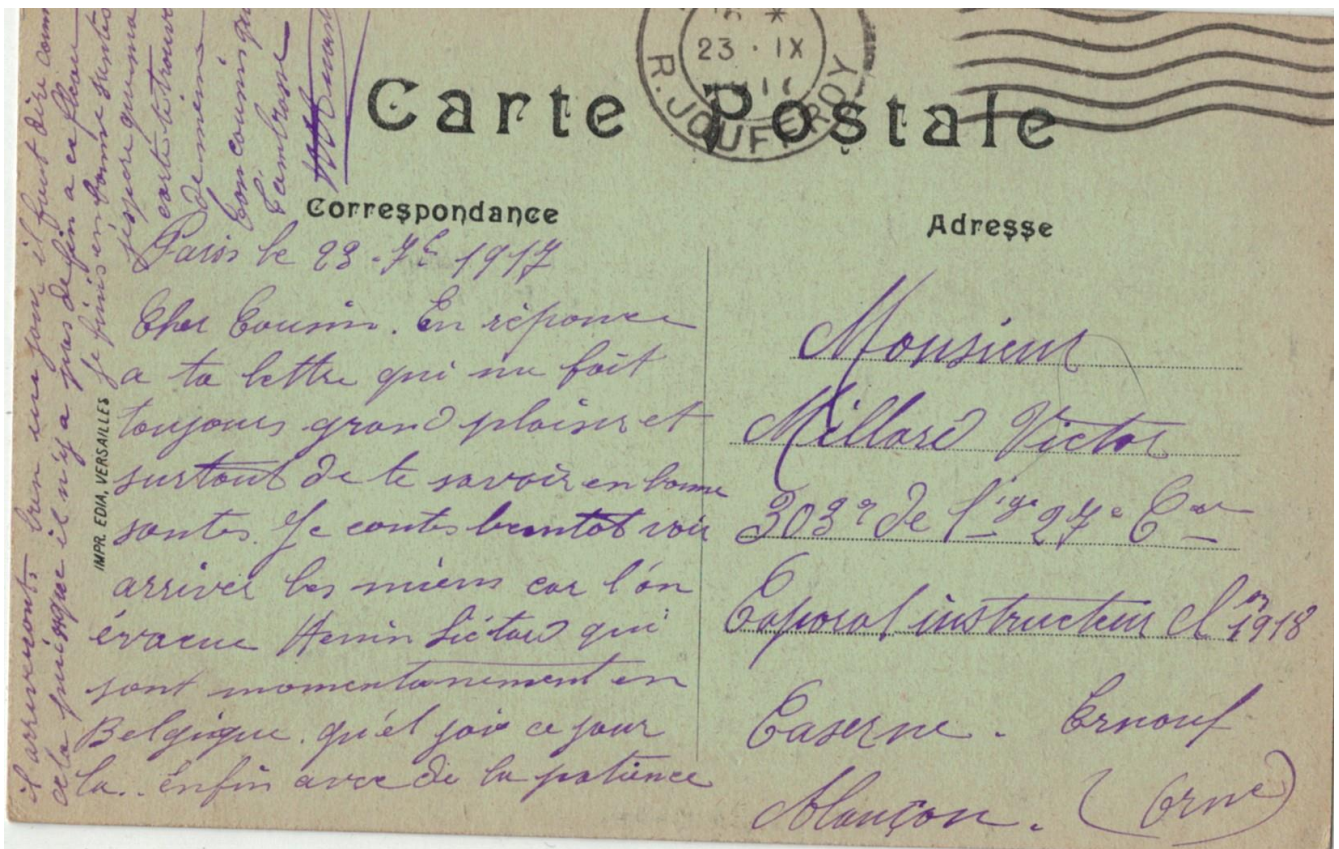 23 · IX
R. JOUFFROY
Carte Postale
Correspondance
Adresse
IMPR. EDIA, VERSAILLES
Paris le 23 - 7e 1917
Cher Cousin. En réponce
a ta lettre qui me fait
toujours grand plaisir et
surtout de te savoir en bonne
santes. Je contes bentot voir
arriver les miens car l'on
évacue Henin Liétard qui
sont momentanement en
Belgique. quél joie ce jour
la.. enfin avec de la patience
il arriveront bien un jour il faut dire comme
cela puisque il n'y a pas de fin a ce fléau
je finis en bonne santes
jespere que ma
carte te trouve
de meme
ton cousin qui
t'ambrasse
Monsieur
Millard Victor
303e de l'igne 27e Cie
Caporal instructeur Cl 1918
Caserne. Ernouf
Alançon. (Orne)